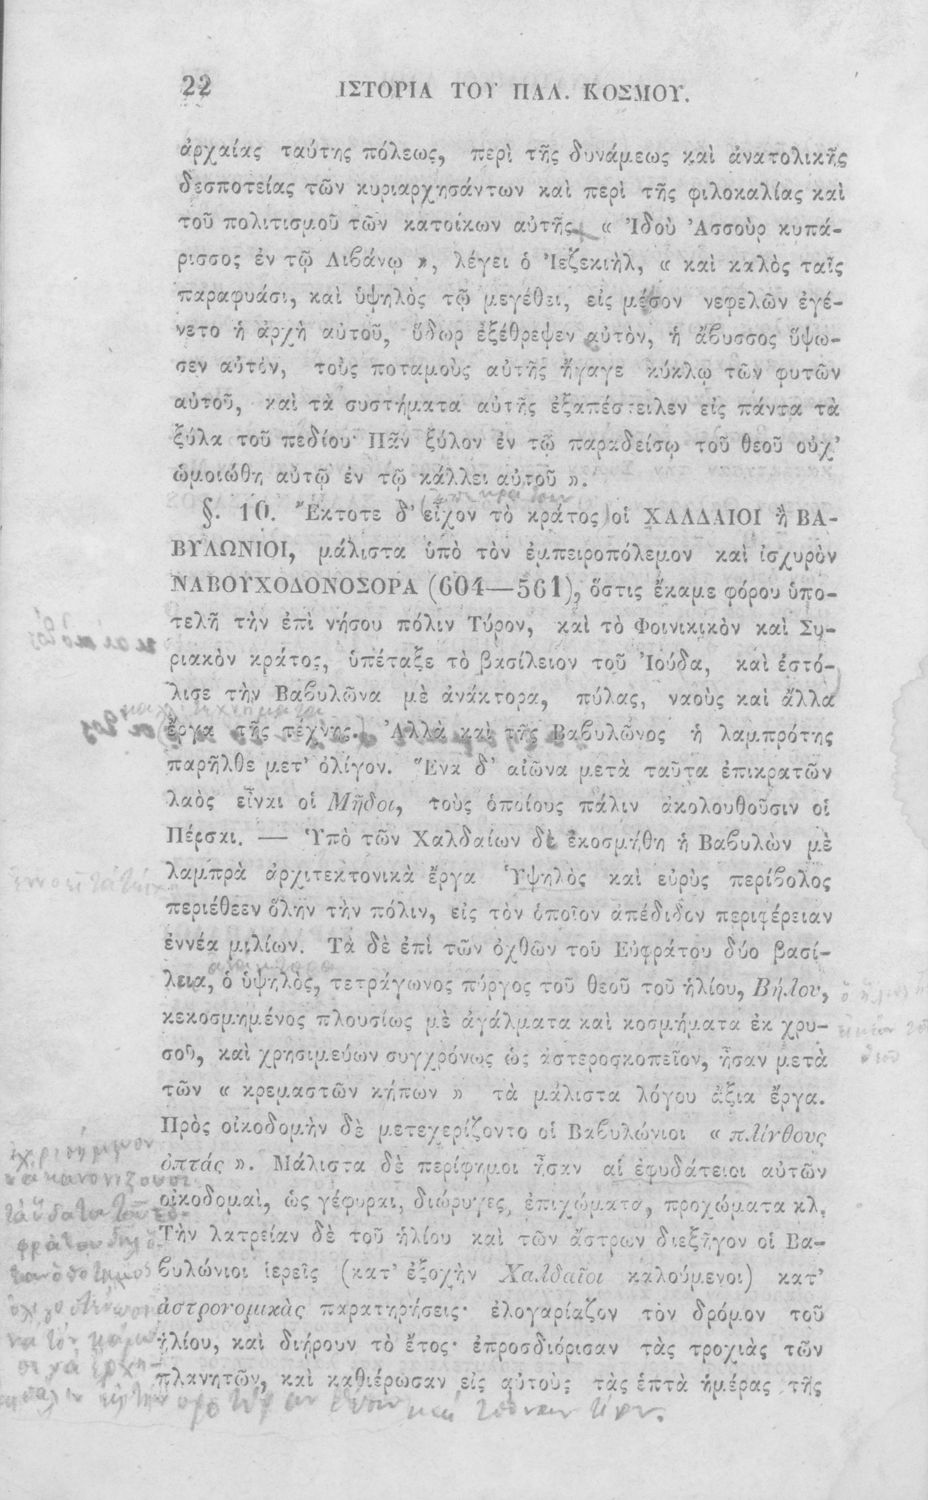 22 ΙΣΤΟΡΙΑ ΤΟΥ ΠΑΛ. ΚΟΣΜΟΥ.
ἀρχαίας ταύτης πόλεως, περὶ τῆς δυνάμεως καὶ ἀνατολικῆς
δεσποτείας τῶν κυριαρχησάντων καὶ περὶ τῆς φιλοκαλίας καὶ
τοῦ πολιτισμοῦ τῶν κατοίκων αὐτῆς. « Ἰδοὺ Ἀσσοὺρ κυπά-
ρισσος ἐν τῷ Λιβάνῳ », λέγει ὁ Ἰεζεκιὴλ, « καὶ καλὸς ταῖς
παραφυάσι, καὶ ὑψηλὸς τῷ μεγέθει, εἰς μέσον νεφελῶν ἐγέ-
νετο ἡ ἀρχὴ αὐτοῦ, ὕδωρ ἐξέθρεψεν αὐτὸν, ἡ ἄβυσσος ὕψω-
σεν αὐτὸν, τοὺς ποταμοὺς αὐτῆς ἤγαγε κύκλῳ τῶν φυτῶν
αὐτοῦ, καὶ τὰ συστήματα αὐτῆς ἐξαπέστειλεν εἰς πάντα τὰ
ξύλα τοῦ πεδίου· Πᾶν ξύλον ἐν τῷ παραδείσῳ τοῦ θεοῦ οὐχ'
ὡμοιώθη αὐτῷ ἐν τῷ κάλλει αὐτοῦ ».
§. 10. Ἔκτοτε δ' εἶχον τὸ κράτος οἱ ΧΑΛΔΑΙΟΙ ἢ ΒΑ-
ΒΥΛΩΝΙΟΙ, μάλιστα ὑπὸ τὸν ἐμπειροπόλεμον καὶ ἰσχυρὸν
ΝΑΒΟΥΧΟΔΟΝΟΣΟΡΑ (604—561), ὅστις ἔκαμε φόρου ὑπο-
τελῆ τὴν ἐπὶ νήσου πόλιν Τύρον, καὶ τὸ Φοινικικὸν καὶ Συ-
ριακὸν κράτος, ὑπέταξε τὸ βασίλειον τοῦ Ἰούδα, καὶ ἐστό-
λισε τὴν Βαβυλῶνα μὲ ἀνάκτορα, πύλας, ναοὺς καὶ ἄλλα
ἔργα τῆς τέχνης. Ἀλλὰ καὶ τῆς Βαβυλῶνος ἡ λαμπρότης
παρῆλθε μετ' ὀλίγον. Ἕνα δ' αἰῶνα μετὰ ταῦτα ἐπικρατῶν
λαὸς εἶναι οἱ Μῆδοι, τοὺς ὁποίους πάλιν ἀκολουθοῦσιν οἱ
Πέρσαι. — Ὑπὸ τῶν Χαλδαίων δὲ ἐκοσμήθη ἡ Βαβυλὼν μὲ
λαμπρὰ ἀρχιτεκτονικὰ ἔργα Ὑψηλὸς καὶ εὐρὺς περίβολος
περιέθεεν ὅλην τὴν πόλιν, εἰς τὸν ὁποῖον ἀπέδιδον περιφέρειαν
ἐννέα μιλίων. Τὰ δὲ ἐπὶ τῶν ὀχθῶν τοῦ Εὐφράτου δύο βασί-
λεια, ὁ ὑψηλὸς, τετράγωνος πύργος τοῦ θεοῦ τοῦ ἡλίου, Βήλου,
κεκοσμημένος πλουσίως μὲ ἀγάλματα καὶ κοσμήματα ἐκ χρυ-
σοῦ, καὶ χρησιμεύων συγχρόνως ὡς ἀστεροσκοπεῖον, ἦσαν μετὰ
τῶν « κρεμαστῶν κήπων » τὰ μάλιστα λόγου ἄξια ἔργα.
Πρὸς οἰκοδομὴν δὲ μετεχειρίζοντο οἱ Βαβυλώνιοι « πλίνθους
ὀπτάς ». Μάλιστα δὲ περίφημοι ἦσαν αἱ ἐφυδάτειοι αὐτῶν
οἰκοδομαὶ, ὡς γέφυραι, διώρυγες, ἐπιχώματα, προχώματα κλ.
Τὴν λατρείαν δὲ τοῦ ἡλίου καὶ τῶν ἄστρων διεξῆγον οἱ Βα-
βυλώνιοι ἱερεῖς (κατ' ἐξοχὴν Χαλδαῖοι καλούμενοι) κατ'
ἀστρονομικὰς παρατηρήσεις· ἐλογαρίαζον τὸν δρόμον τοῦ
ἡλίου, καὶ διῄρουν τὸ ἔτος· ἐπροσδιόρισαν τὰς τροχιὰς τῶν
πλανητῶν, καὶ καθιέρωσαν εἰς αὐτοὺς τὰς ἑπτὰ ἡμέρας τῆς